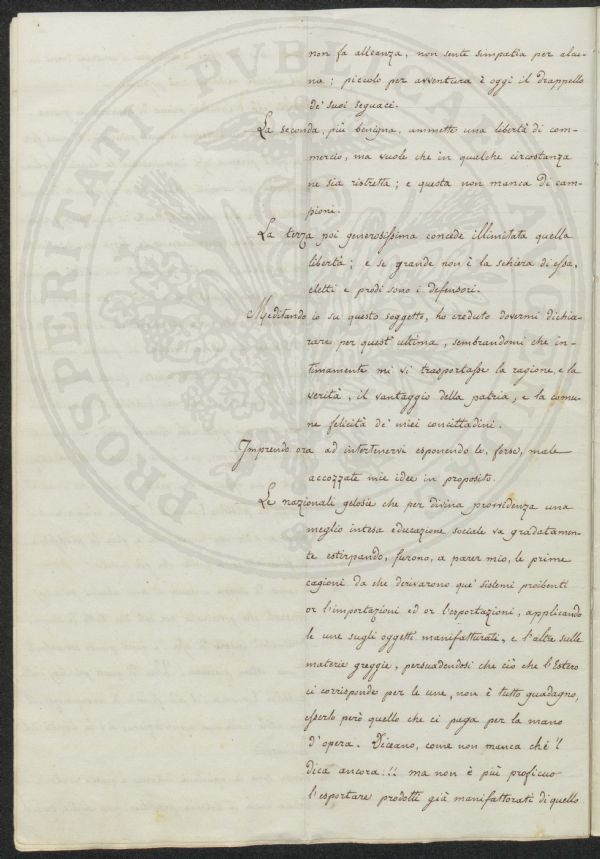 non fa alleanza, non sente simpatia per alcu-
na; piccolo per avventura è oggi il drappello
de' suoi seguaci.
La seconda, più benigna, ammette una libertà di com-
mercio, ma vuole che in qualche circostanza
ne sia ristretta; e questa non manca di cam-
pioni.
La terza poi generosissima concede illimitata quella
libertà; e se grande non è la schiera di essa,
eletti e prodi sono i defensori.
Meditando io su questo soggetto, ho creduto dovermi dichia-
rare per quest'ultima, sembrandomi che in-
timamente mi vi trasportasse la ragione, e la
verità, il vantaggio della patria, e la comu-
ne felicità de' miei concittadini.
Imprendo ora ad intertenervi esponendo le, forse, male
accozzate mie idee in proposito.
Le nazionali gelosie che per divina provvidenza una
meglio intesa educazione sociale va gradatamen-
te estirpando, furono, a parer mio, le prime
cagioni da che derivarono que' sistemi proibenti
or l'importazioni ed or l'esportazioni, applicando
le une sugli oggetti manifatturati, e l'altre sulle
materie greggie, persuadendosi che ciò che l'Estero
ci corrisponde per le une, non è tutto guadagno,
esserlo però quello che ci paga per la mano
d'opera. Diceano, come non manca chi 'l
dica ancora!! ma non è più proficuo
l'esportare prodotti già manifattorati di quello
PROSPERITATI PUBLICAE AUGENDAE